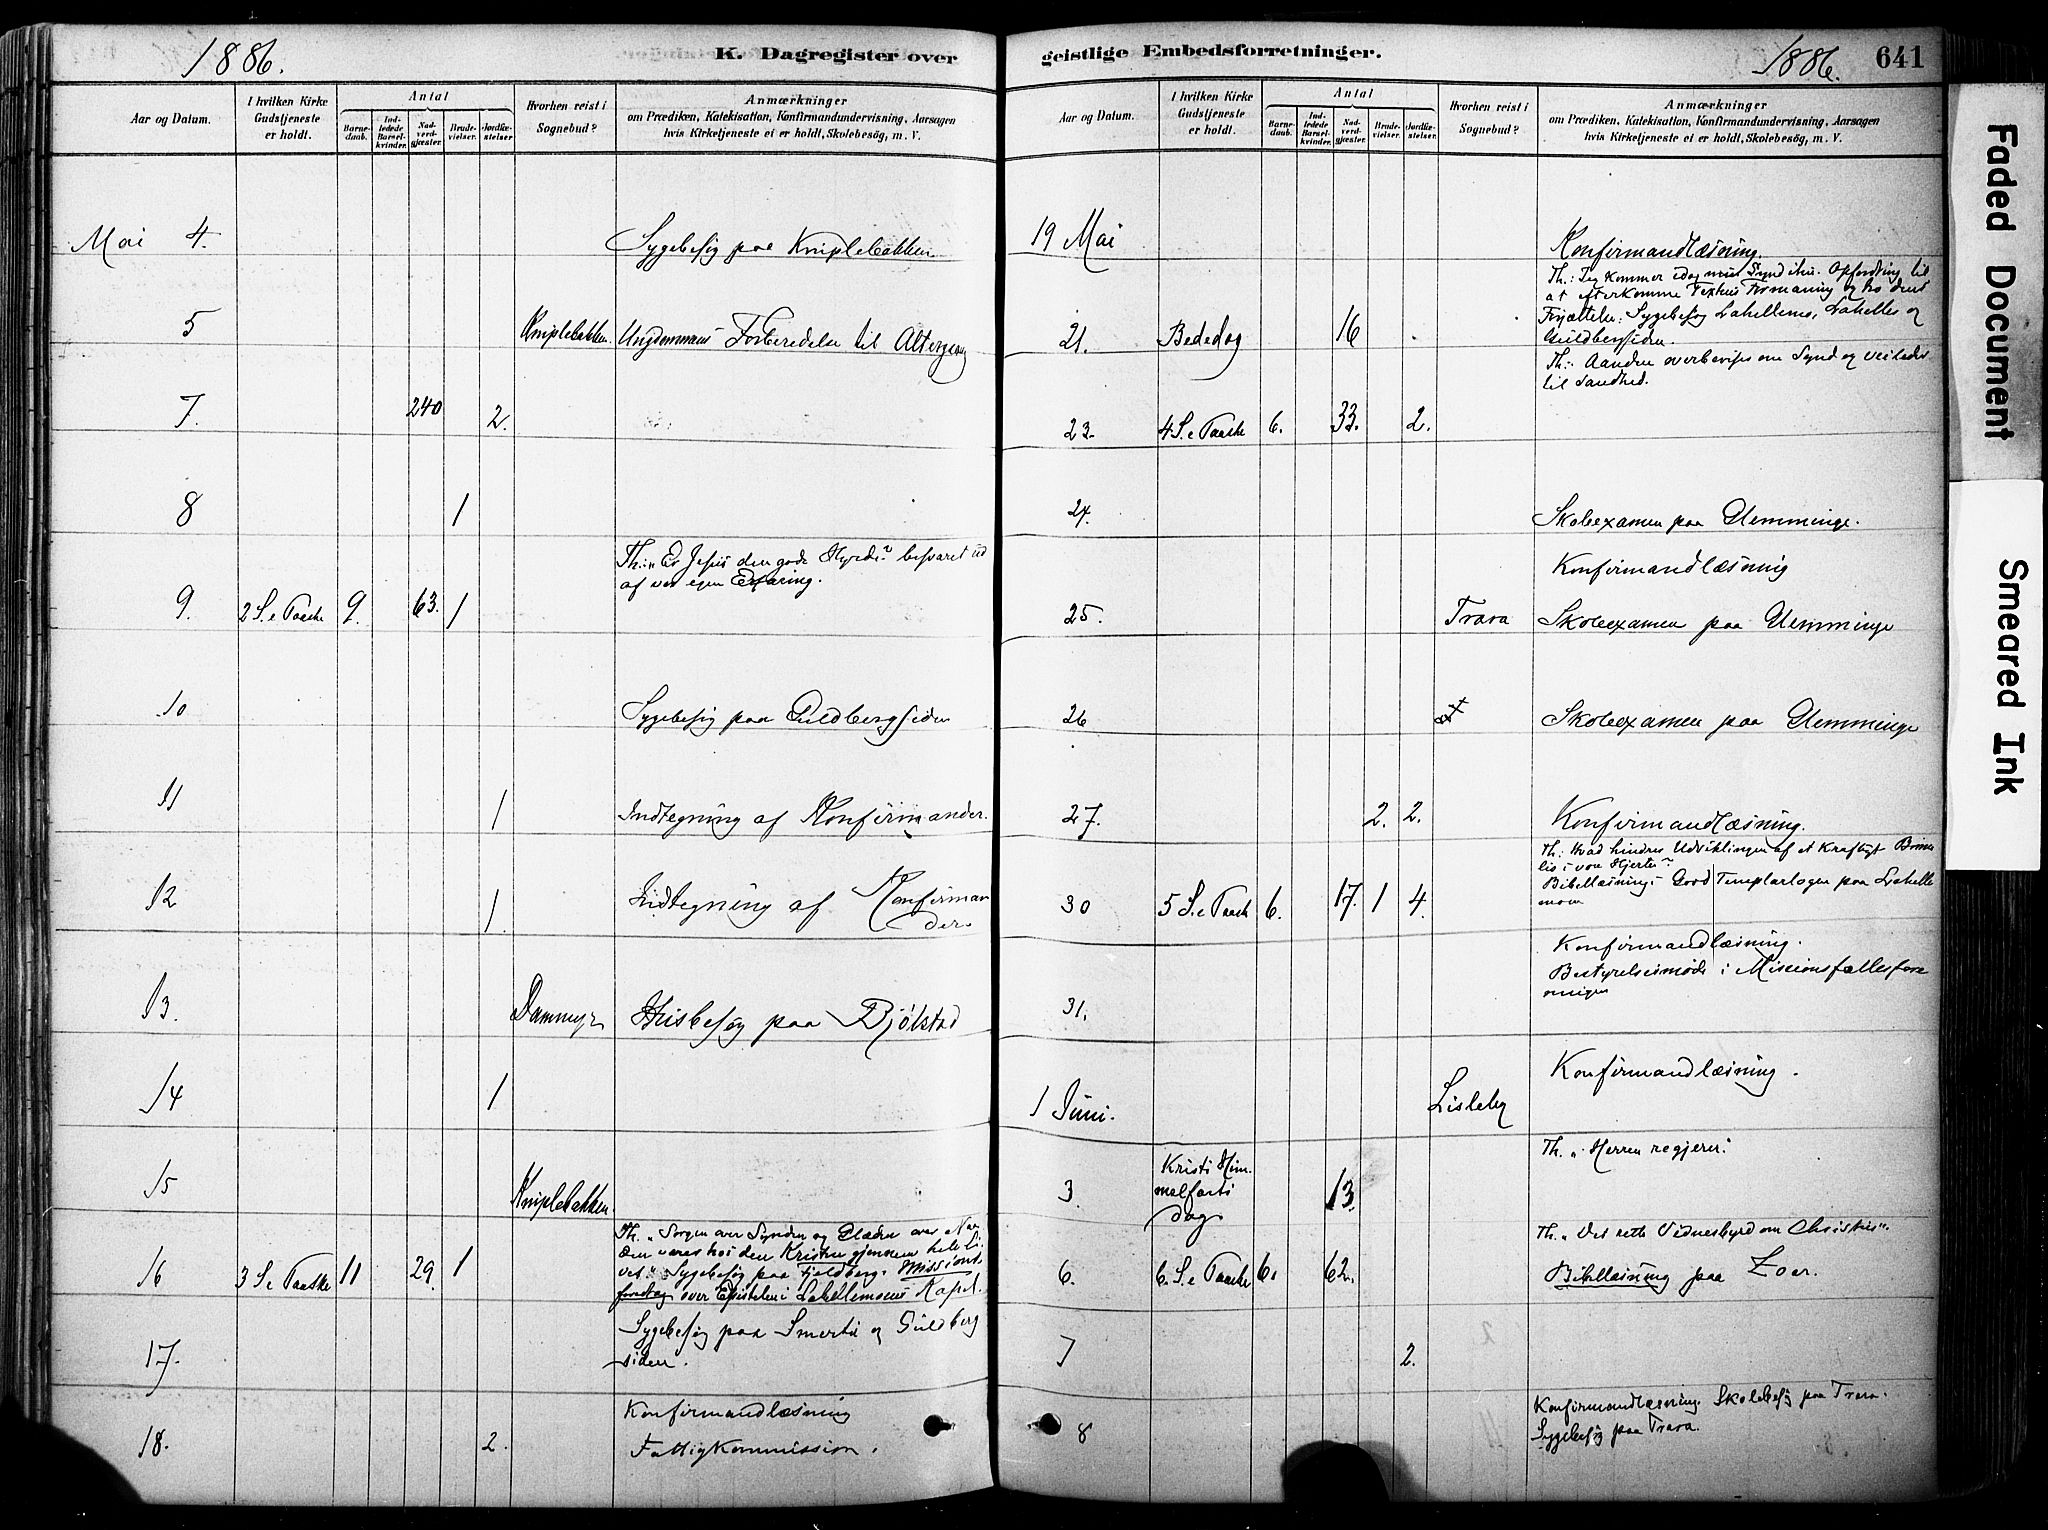 1886.
K. Dagregister over
Aar og Datum.
I hvilken Kirke Gudstjeneste er holdt.
Antal
Barnedaab.
Indledede Barselkvinder.
Nadverdgjæster.
Brudevielser.
Jordfæstelser.
Hvorhen reist i Sognebud?
Anmærkninger
om Prædiken, Katekisation, Konfirmandundervisning, Aarsagen
hvis Kirketjeneste ei er holdt, Skolebesög, m. V.
Mai 4. Sygebesøg paa Kniplebakken
5 Kniplebakken. Ungdommens Forberedelse til Altergang
7. 240 2.
8 1
Th: "Er Jesus den gode Hyrde?" besvaret ud
af vor egen Erfaring.
9. 2 S. e Paaske 9. 63. 1
10 Sygebesøg paa Guldbergsiden
11 1 Indtegning af Konfirmander.
12 1. Indtegning af Konfirman
der.
13. Dammyr Husbesøg paa Bjølstad
14 1
15 Kniplebakken.
Th. "Sorgen over Synden og Glæden over Naa-
den være hos den Kristne gjennem hele Li-
16 3 S. e Paaske 11 29. 1 vet". Sygebesøg paa Fjeldberg. Missions
foredrag over Epistelen i Lahellemoens Kapel.
Sygebesøg paa Smertu og Guldberg
17. siden.
Konfirmandlæsning
18. 2. Fattigkommission.
geistlige Embedsforretninger.
1886.
641
Aar og Datum.
I hvilken Kirke Gudstjeneste er holdt.
Antal
Barnedaab.
Indledede Barselkvinder.
Nadverdgjæster.
Brudevielser.
Jordfæstelser.
Hvorhen reist i Sognebud?
Anmærkninger
om Prædiken, Katekisation, Konfirmandundervisning, Aarsagen
hvis Kirketjeneste ei er holdt, Skolebesög, m. V.
19 Mai Konfirmandlæsning.
Th: Jeg kommer idag mine Synd ihu. Opfordring til
at efterkomme Textens Formaning og ho dens
Forjættelse. Sygebesøg Lahellemo, Lahelle og
21. Bededag 16 Guldbergsiden.
Th: Aanden overbeviser om Synd og veileder
til Sandhed.
23. 4 S. e Paaske 6. 33. 2.
24. Skoleexamen paa Glemminge.
Konfirmandlæsning
25. Trara Skoleexamen paa Glemminge
26 Skoleexamen paa Glemminge
27. 2. 2. Konfirmandlæsning.
Th: Hvad hindrer Udviklingen af et kraftigt Bønne
liv i vore Hjerter?
30 5 S. e Paask 6. 17. 1 4. Bibellæsning i Good Templarlogen paa Lahelle
moen
Konfirmandlæsning.
Bestyrelsesmøde i Missionsfællesfore
31. ningen
Konfirmandlæsning.
1 Juni. Lisleby
Th. "Herren regjerer."
3 Kristi Him
melfarts
dag 13.
Th. "Det rette Vidnesbyrd om Christus".
6. 6. S. e Paaske 6. 62. Bibellæsning paa Zoar.
7 2.
Konfirmandlæsning. Skolebesøg paa Trara.
8 Sygebesøg paa Trara.
Faded Document
Smeared Ink